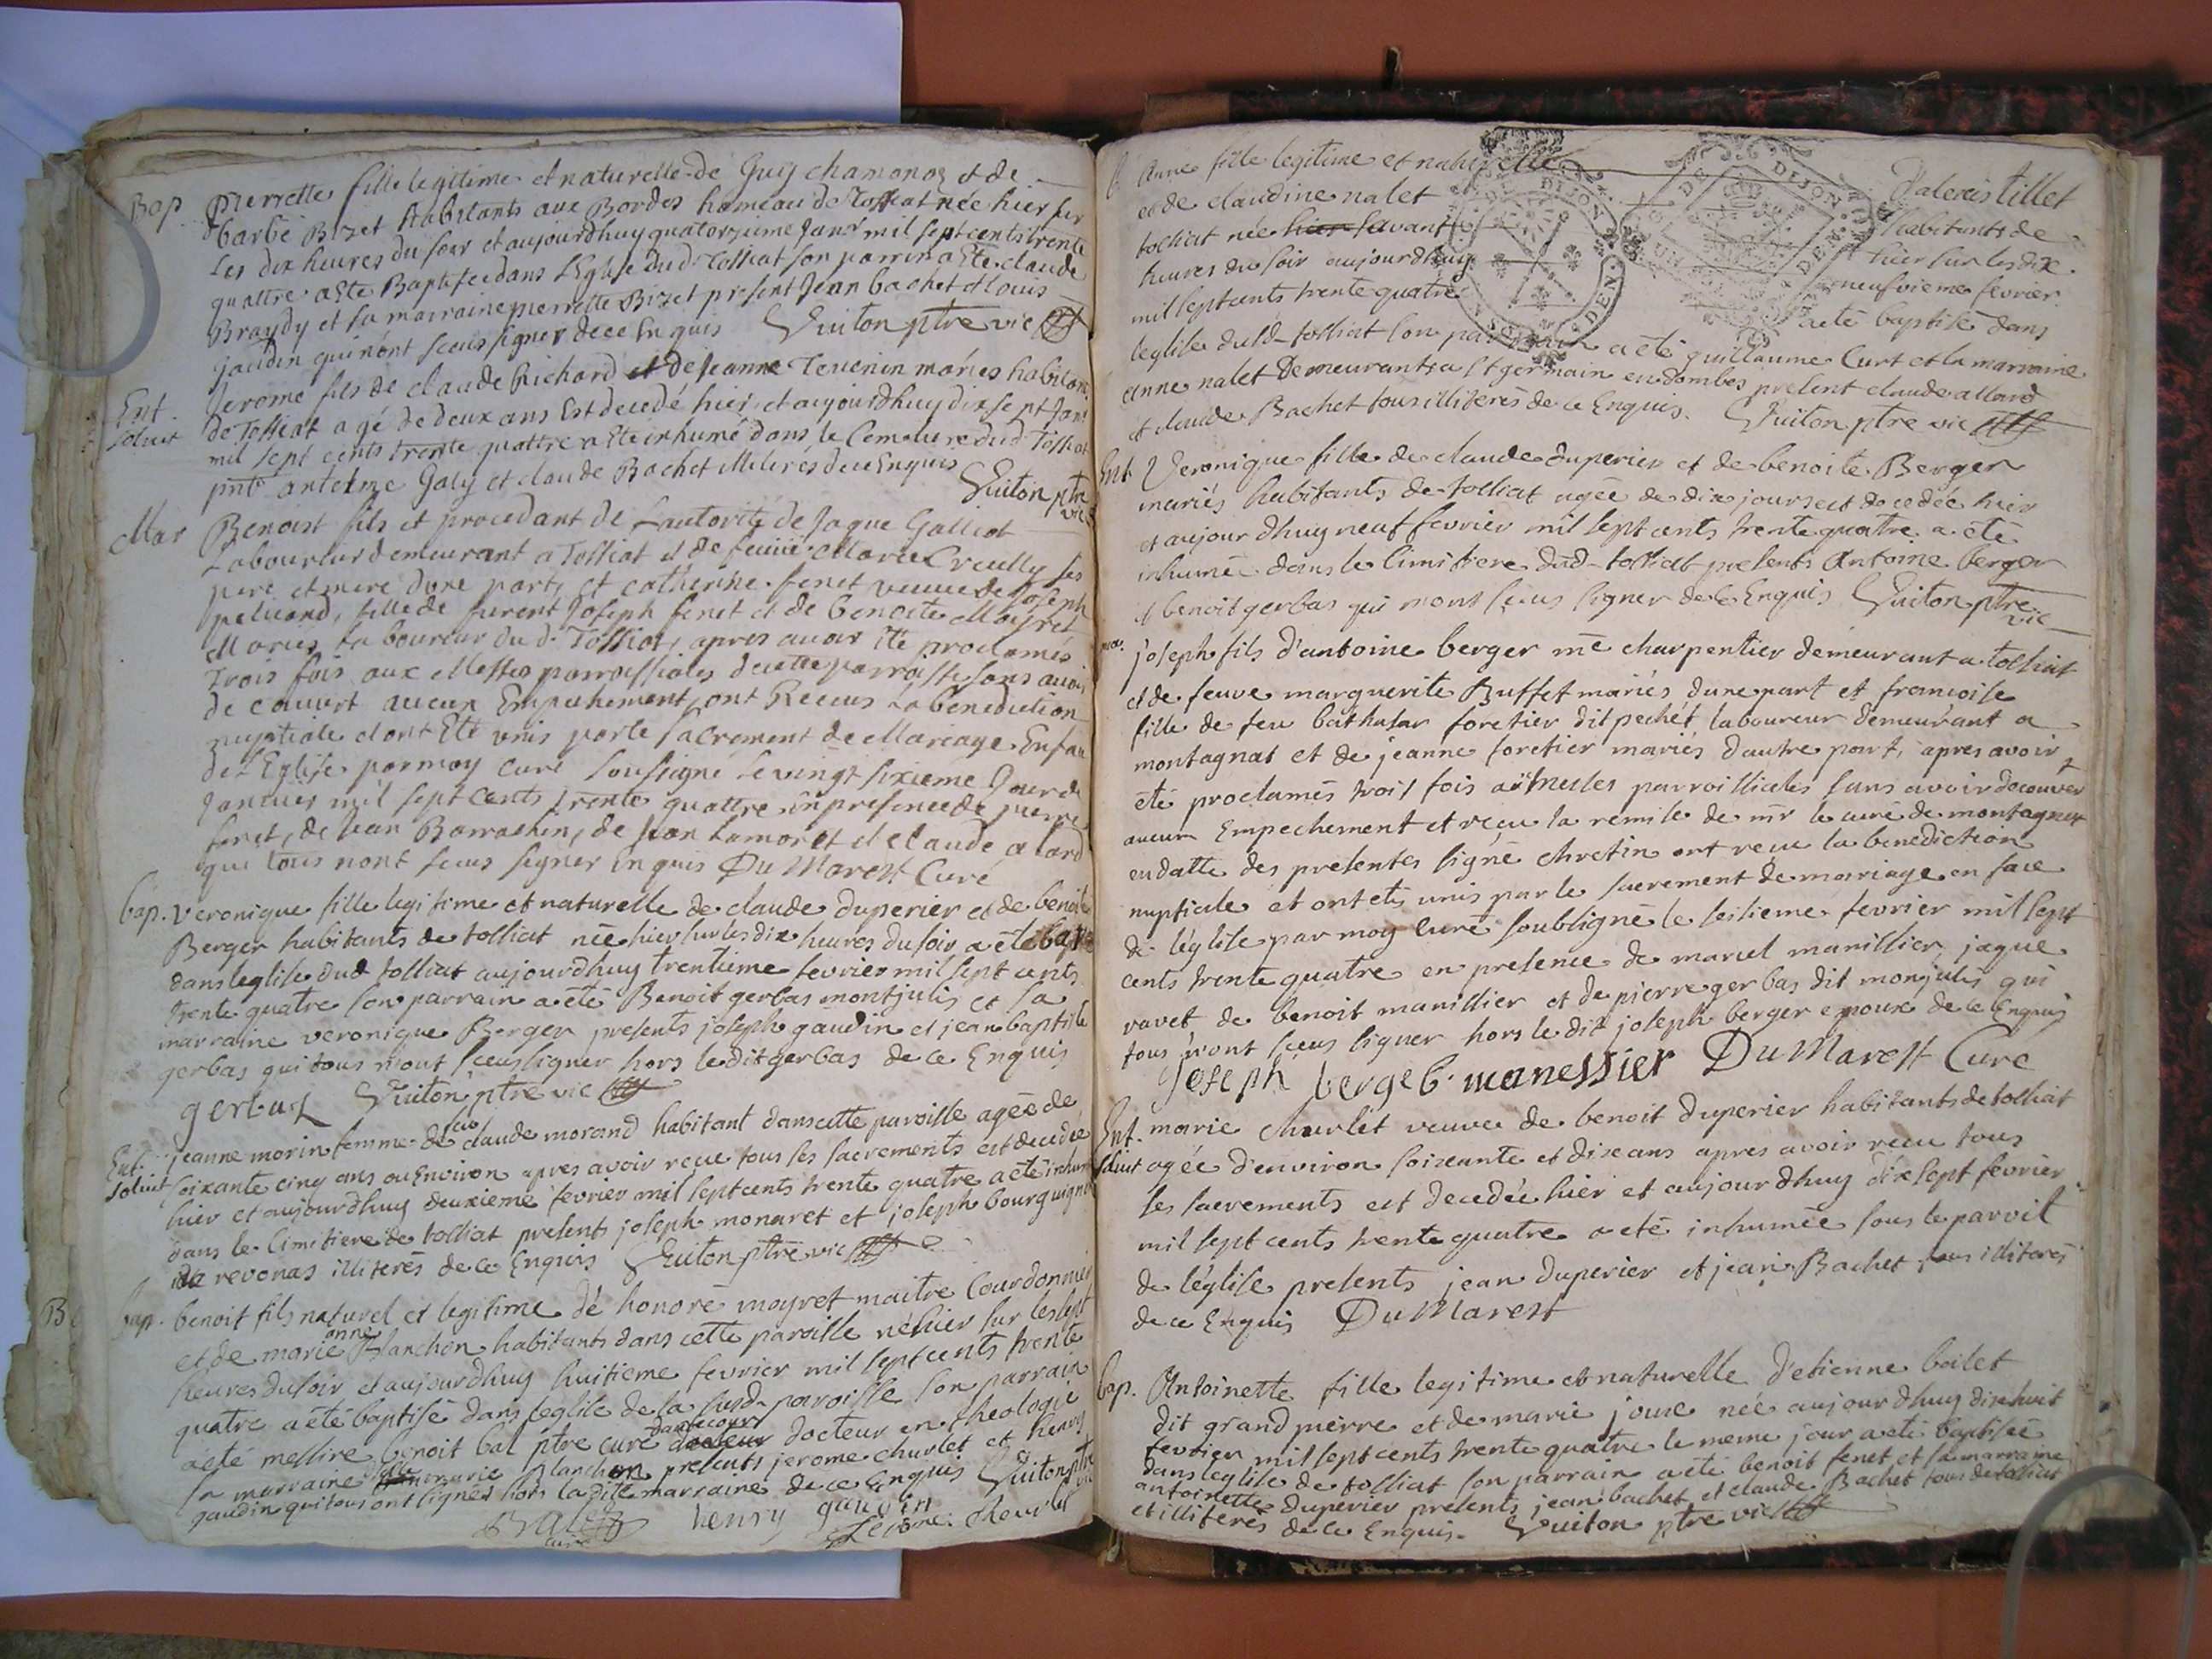 Bap pierrette fille legitime et naturelle de Guy chamonoz et de
Barbe Bizet habitants aux Bordes hameau de Tossiat née hier sur
Les dix heures du soir et aujourdhuy quatorzieme Janr mil sept cents trente
quattre a Eté Baptisée dans L'Eglise dud Tossiat son parrin a Eté claude
Braydy et sa marraine pierrette Bizet present Jean bachet et louis
jaudin qui nont sceus signer de ce Enquis Guiton ptre vic
Ent. Jerome fils de claude Richard et de jeanne Tevenin mariés habitans
solvit de Tossiat agé de deux ans Est decedé hier et aujourdhuy dix sept Janr
mil sept cents trente quattre a Eté inhumé dans le Cemetiere dud Tossiat
pnts antelme Galy et claude Bachet illiterés de ce Enquis
Guiton ptre
vic
Mar Benoist fils et procedant de L'autorité de Jaque Galliot
Laboureur demeurant a Tossiat et de feüe Marie Creully ses
pere et mere d'une part, et catherine fenet veuve de joseph
peluand, fille de furent Joseph fenet et de benoite Moyret
Mariés Laboureur du d. Tossiat, apres avoir Eté proclamés
Trois fois aux Messes parroissiales de cette parroisse sans avoir
decouvert aucun Empechement, ont Receus La benediction
nuptiale et ont Eté unis par le sacrement de Mariage En face
de L'Eglise par moy curé soussigné Le vingt sixieme Jour de
Janvier mil sept cents trente quattre en presence de pierre
fenet, de jean Barrachin, de jean Lamoret et claude alard
qui tous nont sceus signer Enquis Du Marest Curé
bap. veronique fille legitime et naturelle de claude duperier et de benoite
Berger habitants de tossiat née hier sur les dix heures du soir a été bapt
dans leglise dud tossiat aujourdhuy trentieme fevrier mil sept cents
trente quatre son parrain a été Benoit gerbas montjulis et sa
marraine veronique Berger presents joseph gaudin et jean baptiste
gerbas qui tous n'ont sceus signer hors le dit gerbas de ce Enquis
gerbas Guiton ptre vic
Ent. jeanne morin femme de feu claude morand habitant dans cette paroisse agée de
solvit soixante cinq ans ou Environ apres avoir reçue tous les sacrements est decedée
hier et aujourdhuy deuxieme fevrier mil sept cents trente quatre a été inhumée
dans le Cimitiere de tossiat presents joseph monaret et joseph bourguignon
de revonas illiterés de ce Enquis Guiton ptre vic
bap. benoit fils naturel et legitime de honoré moyret maitre Courdonnier
et de marie anne Blanchon habitants dans cette paroisse né hier sur les sept
heures du soir et aujourdhuy huitieme fevrier mil sept cents trente
quatre a été baptisé dans leglise de la susd. paroisse son parrain
a été messire benoit bal ptre curé docteur en theologie
la marraine marie Blanchon presents jerome churlet et henry
gaudin qui tous ont signés hors la dite marraine de ce Enquis Guiton ptre
vic
Bal henry gaudin
curé Jerome Cheurlet
B. Anne fille legitime et naturelle d'alexis tillet
et de claudine nalet habitants de
tossiat née hier sur les dix
heures du soir aujourdhuy neufvieme fevrier
mil sept cents trente quatre a eté baptisé dans
leglise dud tossiat son parrain a été guillaume Curt et la marraine
anne nalet demeurants a st germain en dombes present claude allard
et claude Bachet tous illiterés de ce Enquis. Guiton ptre vic
Ent. Veronique fille de claude duperier et de benoite Berger
mariés habitants de tossiat agée de dix jours est decedée hier
et aujourdhuy neuf fevrier mil sept cents trente quatre a été
inhumée dans le cimitiere dud tossiat presents Antoine berger
et benoit gerbas qui n'ont sçeus signer de ce Enquis Guiton ptre
vic
joseph fils d'antoine berger me charpentier demeurant a tossiat
et de feuve marguerite Buffet mariés d'une part et francoise
fille de feu balthasar foretier dit pechet laboureur demeurant a
montagnat et de jeanne foretier mariés d'autre part, apres avoir
été proclamés trois fois aux messes parroissiales sans avoir decouvert
aucun Empechement et reçu la remise de mr le curé de montagnat
en datte des presentes signé chretin ont receu la benediction
nuptiale et ont eté unis par le sacrement de mariage en face
de léglise par moy curé soubsigné le seizieme fevrier mil sept
cents trente quatre en presence de marcel manissier, jaque
ravet de benoit manissier et de pierre gerbas dit monjulis qui
tous n'ont sceus signer hors le dit joseph berger epoux de ce Enquis
Joseph berge b. manessier Du Marest Curé
Ent. marie churlet veuve de benoit duperier habitants de tossiat
solvit agée d'environ soixante et dix ans apres avoir reçu tous
les sacrements est decedée hier et aujourdhuy dix sept fevrier
mil sept cents trente quatre a eté inhumée sous le parvis
de léglise presents jean duperier et jean Bachet tous illiterés
de ce Enquis Du Marest
bap. Antoinette fille legitime et naturelle d'etienne boilet
dit grand pierre et de marie joure née aujourdhuy dixhuit
fevrier mil sept cents trente quatre le meme jour a eté baptisée
dans leglise de tossiat son parrain a eté benoit fenet et sa marraine
antoinette duperier presents jean bachet et claude Bachet tous de tossiat
et illiterés de ce Enquis. Guiton ptre vic